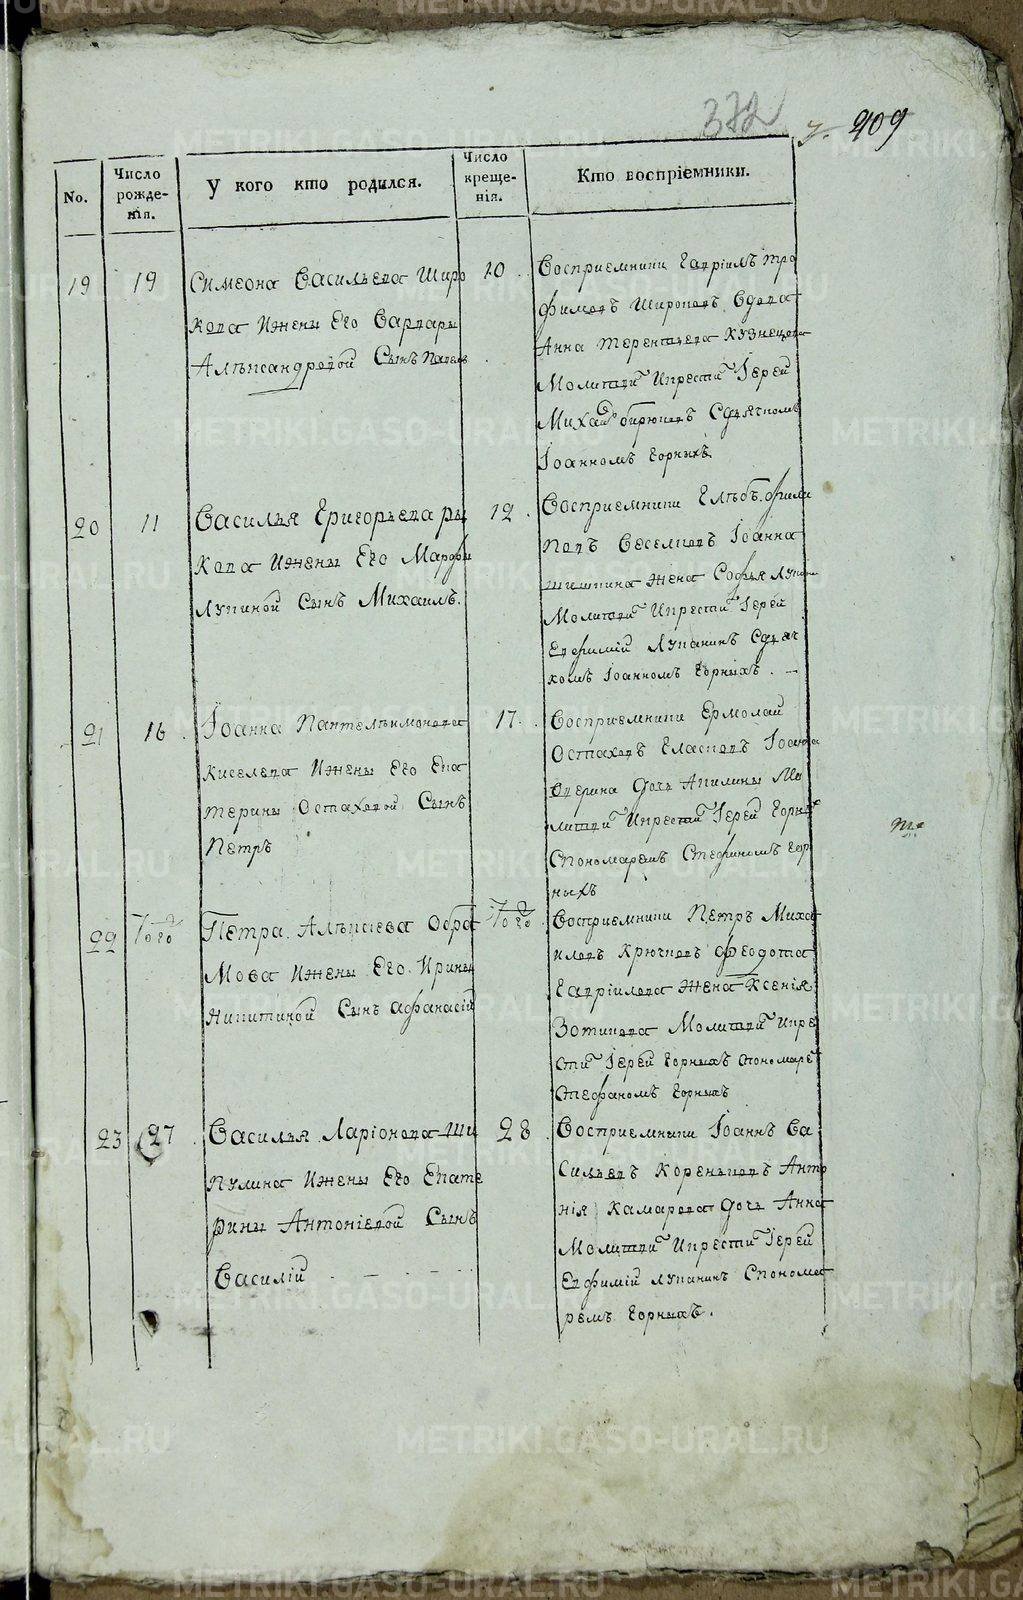 372
209
No.
Число рожденія.
У кого кто родился.
Число крещенія.
Кто воспріемники.
19
19
Симеона Васильева Широ
кова и жены его Варвары
Александровой сынъ Павелъ
20
Воспріемники Гавріилъ Тро
фимовъ Широковъ вдова
Анна Терентьева Кузнецова
Молитв. и крести. Іерей
Михаил Бирюковъ с дьячкомъ
Іоанномъ Горныхъ
20
11
Василья Григорьева Ры
кова и жены его Марфы
Лукиной сынъ Михаилъ.
12
Воспріемники Глѣбъ Фили
повъ Веселковъ Іоанна
Шишкина жена Софья Лукина
Молитв. и крести. Іерей
Евфимій Лупанинъ с дьяч
комъ Іоанномъ Горныхъ. —
21
16
Іоанна Пантелѣимонова
Киселева и жены его Ека
терины Остаховой сынъ
Петръ
17.
Воспріемники Ермолай
Остаховъ Власковъ Іоанна
дочь Акилины Мо
литв. и крести. Іерей Горных
с пономаремъ Стефаномъ Гор
ныхъ
22
Того
Петра Алексіева Обра
мова и жены его Ирины
Никитиной сынъ Афанасій
Того
Воспріемники Петръ Миха
иловъ Крючковъ Феодота
Гавріилова жена Ксенія
Зотикова Молитв. и кре
сти. Іерей Горныхъ с пономаре
Стефаномъ Горныхъ
23
27
Василья Ларіонова Ши
пулина и жены его Екате
рины Антоніевой сынъ
Василій
28
Воспріемники Іоаннъ Ва
сильевъ Кореньковъ Анто
нія Камарова дочь Анна
Молитв. и крести. Іерей
Евфимій Лупанинъ с понома
ремъ Горныхъ.
METRIKI.GASO-URAL.RU